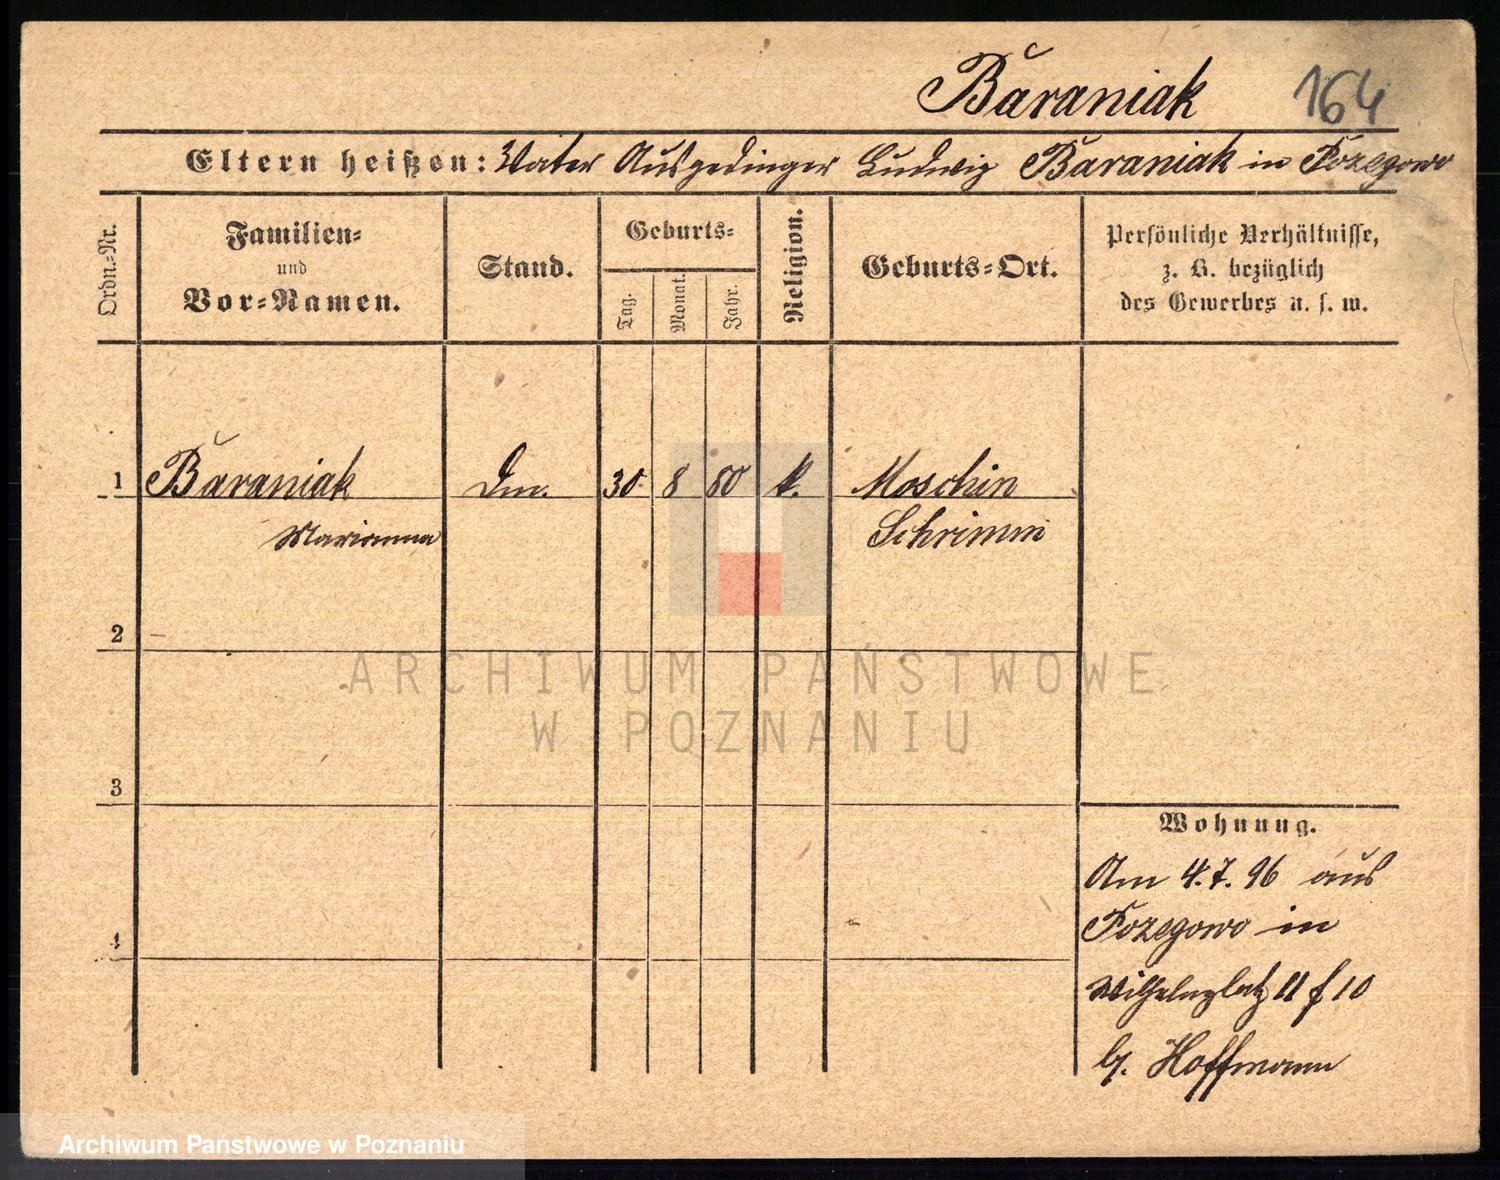 Baraniak 164
Eltern heißen: Vater Ausgedinger Ludwig Baraniak in Pozegowo
Ordn.-Nr.
Familien-
und
Vor-Namen.
Stand.
Geburts-
Tag.
Monat.
Jahr.
Religion.
Geburts-Ort.
Persönliche Verhältnisse,
z. B. bezüglich
des Gewerbes u. s. w.
1 Baraniak 30 8 80 k. Moschin
Marianna Schrimm
2
3
4
Wohnung.
Am 4.7.96 aus
Pozegowo in
Wilhelmplatz 11 f 10
b. Hoffmann
ARCHIWUM PAŃSTWOWE
W POZNANIU
Archiwum Państwowe w Poznaniu